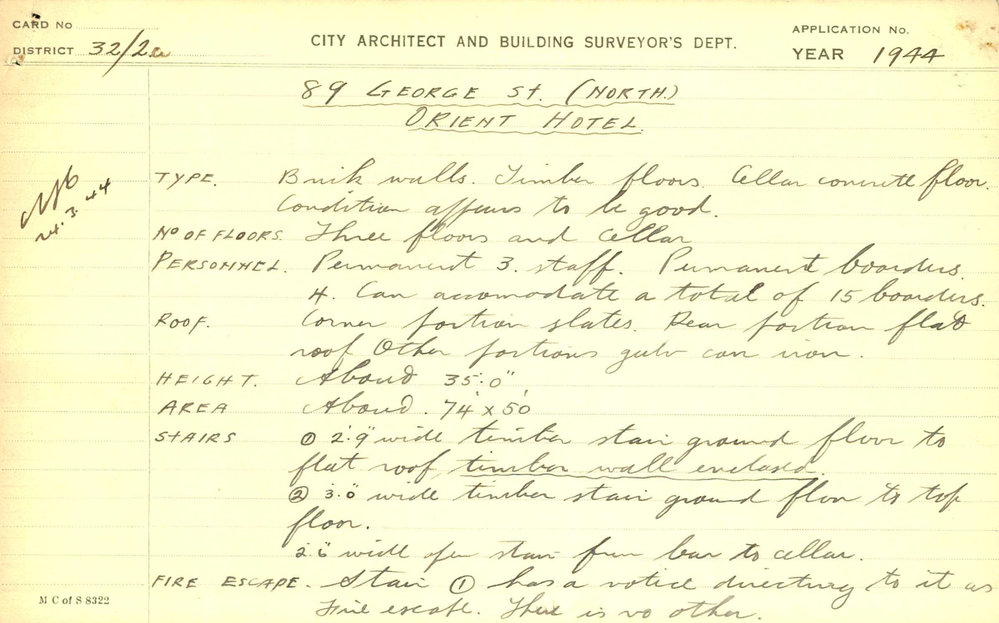 CARD No
DISTRICT 32/2a
CITY ARCHITECT AND BUILDING SURVEYOR'S DEPT.
APPLICATION No.
YEAR 1944
89 GEORGE St. (NORTH.)
ORIENT HOTEL.
24.3.44
TYPE. Brick walls. Timber floors. Cellar concrete floor.
Condition appears to be good.
No OF FLOORS. Three floors and Cellar
PERSONNEL. Permanent 3. staff. Permanent boarders.
4. Can accomodate a total of 15 boarders.
ROOF. Corner portion slates. Rear portion flat
roof Other portions galv corr iron.
HEIGHT. About 35'.0"
AREA About. 74' x 50'
STAIRS ① 2'.9" wide timber stair ground floor to
flat roof timber wall enclosed.
② 3'.0" wide timber stair ground floor to top
floor.
2'.6" wide open stair from bar to cellar.
FIRE ESCAPE. Stair ① has a notice directing to it as
Fire escape. There is no other.
M C of S 8322